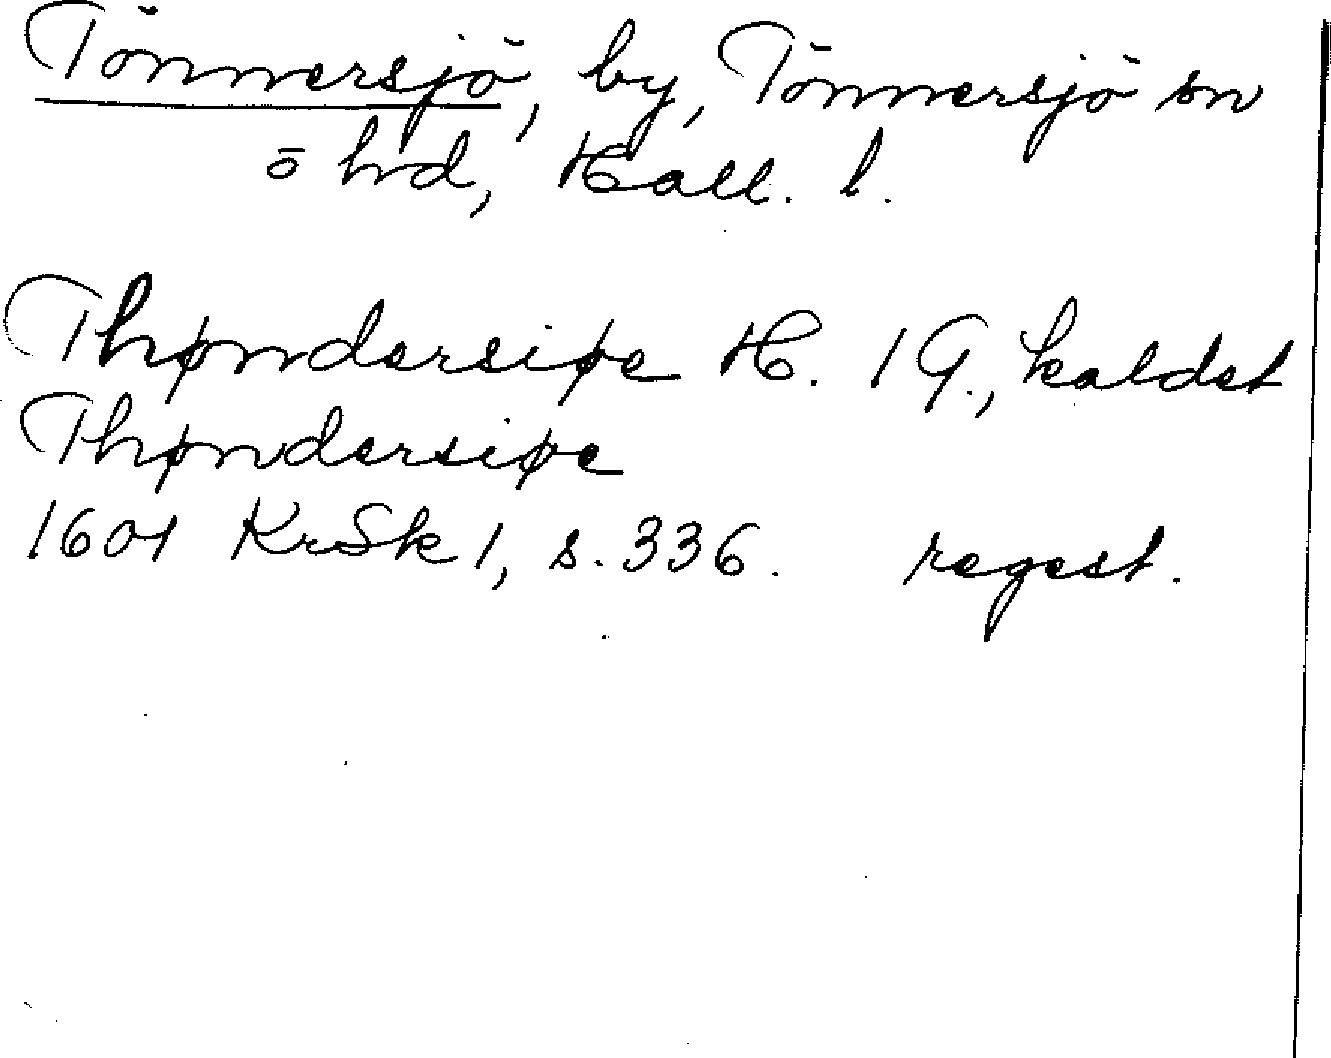 Tönnersjö, by, Tönnersjö sn
o hd, Hall. l.
Thønndersiøe H. 1 G., kaldet
Thønndersiøe
1601 KrSk 1, s. 336. regest.